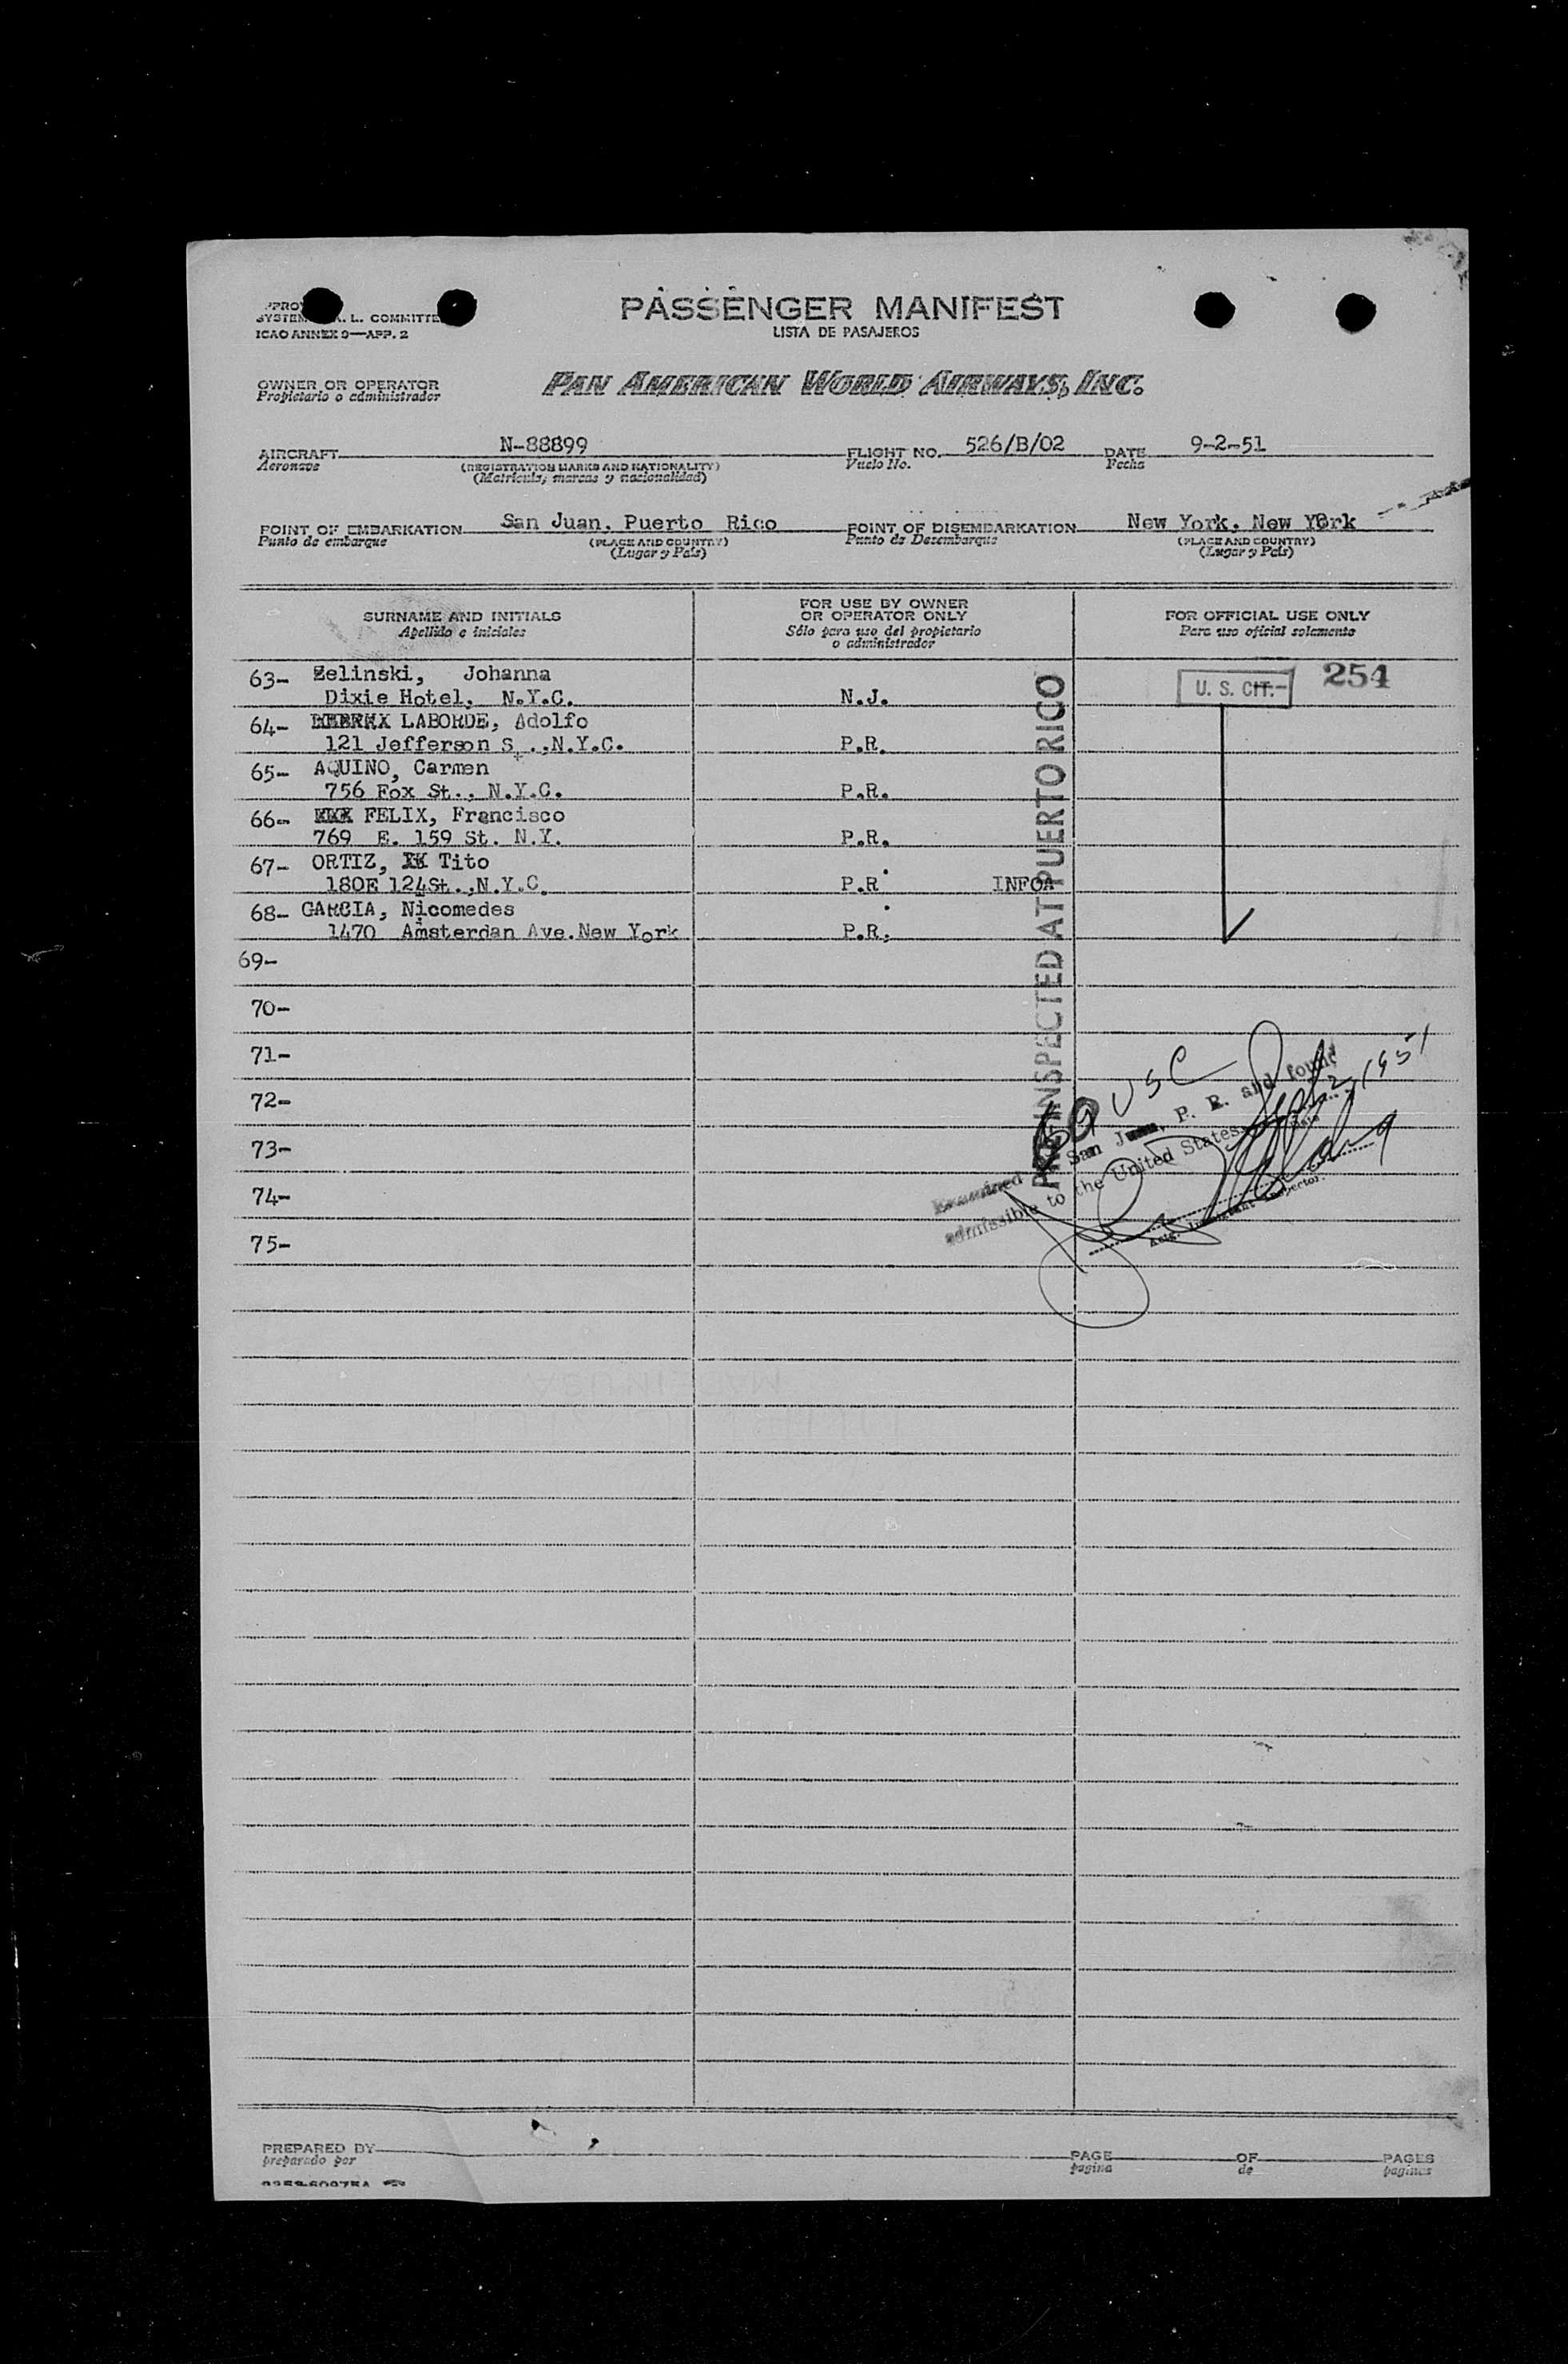 PASSENGER MANIFEST
LISTA DE PASAJEROS
SYSTEM A. L. COMMITTE
ICAO ANNEX 9—APP. 2
OWNER OR OPERATOR
Propietario o administrador
PAN AMERICAN WORLD AIRWAYS, INC.
AIRCRAFT N-88899 FLIGHT NO. 526/B/02 DATE 9-2-51
Aeronave (REGISTRATION MARKS AND NATIONALITY) Vuelo No. Fecha
(Matricula, marcas y nacionalidad)
POINT OF EMBARKATION San Juan, Puerto Rico POINT OF DISEMBARKATION New York, New York
Punto de embarque (PLACE AND COUNTRY) Punto de Desembarque (PLACE AND COUNTRY)
(Lugar y País) (Lugar y País)
SURNAME AND INITIALS FOR USE BY OWNER OR OPERATOR ONLY FOR OFFICIAL USE ONLY
Apellido e iniciales Sólo para uso del propietario o administrador Para uso oficial solamente
63- Zelinski, Johanna U. S. CIT. 254
Dixie Hotel, N.Y.C. N.J.
64- LABORDE, Adolfo
121 Jefferson S ., N.Y.C. P.R.
65- AQUINO, Carmen
756 Fox St., N.Y.C. P.R.
66- FELIX, Francisco
769 E. 159 St. N.Y. P.R.
67- ORTIZ, Tito
180E 124St.,N.Y.C. P.R INFOA
68- GARCIA, Nicomedes
1470 Amsterdan Ave.New York P.R.
69-
70-
71-
72-
73-
74-
75-
PRE-INSPECTED AT PUERTO RICO
69 USC
Examined San Juan, P. R. and found
admissible to the United States. 2, 1951
Date
Actg. Immigrant Inspector.
MADE IN USA
PREPARED BY PAGE OF PAGES
preparado por pagina de paginas